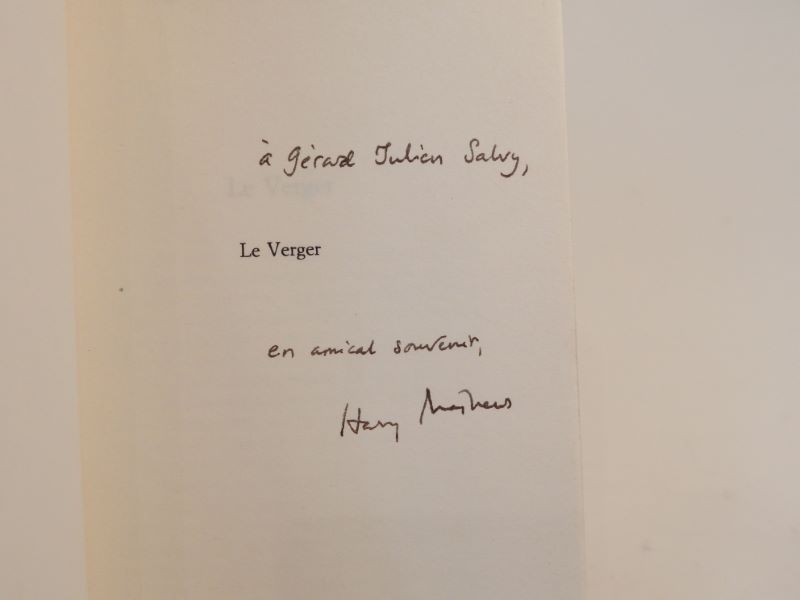 à Gérard Julien Salvy,
Le Verger
en amical souvenir,
Harry Mathews